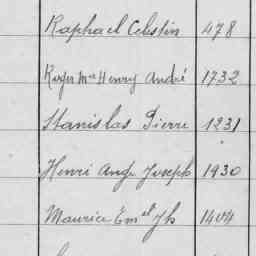 Raphael Celestin 478
Roger Mce Henry André 1732
Stanislas Pierre 1231
Henri Ange Joseph 1930
Maurice Emel Jh 1404